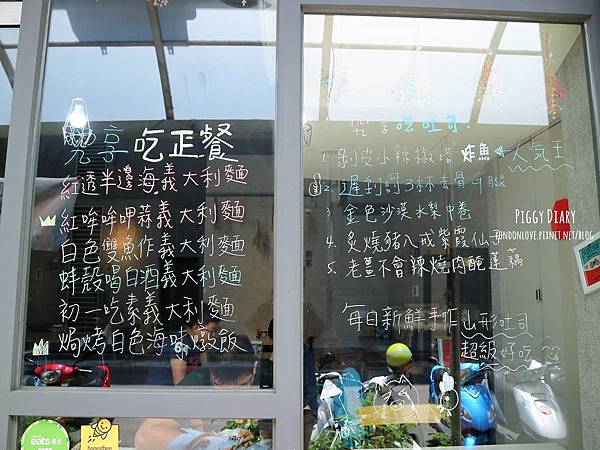 晚享 吃正餐
紅透半邊海義大利麵
紅哞哞呷蒜義大利麵
白色雙魚作義大利麵
蚌殼喝白酒義大利麵
初一吃素義大利麵
焗烤白色海味燉飯
享 吃吐司
1. 剝皮小辣椒塔 炸魚 人氣王
2. 遲到罰3杯去骨
3. 金色沙漠水梨中卷
4. 炙燒豬八戒紫霞仙子
5. 老薑不會辣燒肉醃蓮藕
每日新鮮手作山形吐司
超級好吃
PIGGY DIARY
LONDONLOVE.PIXNET.NET/BLOG
eats
honestbee